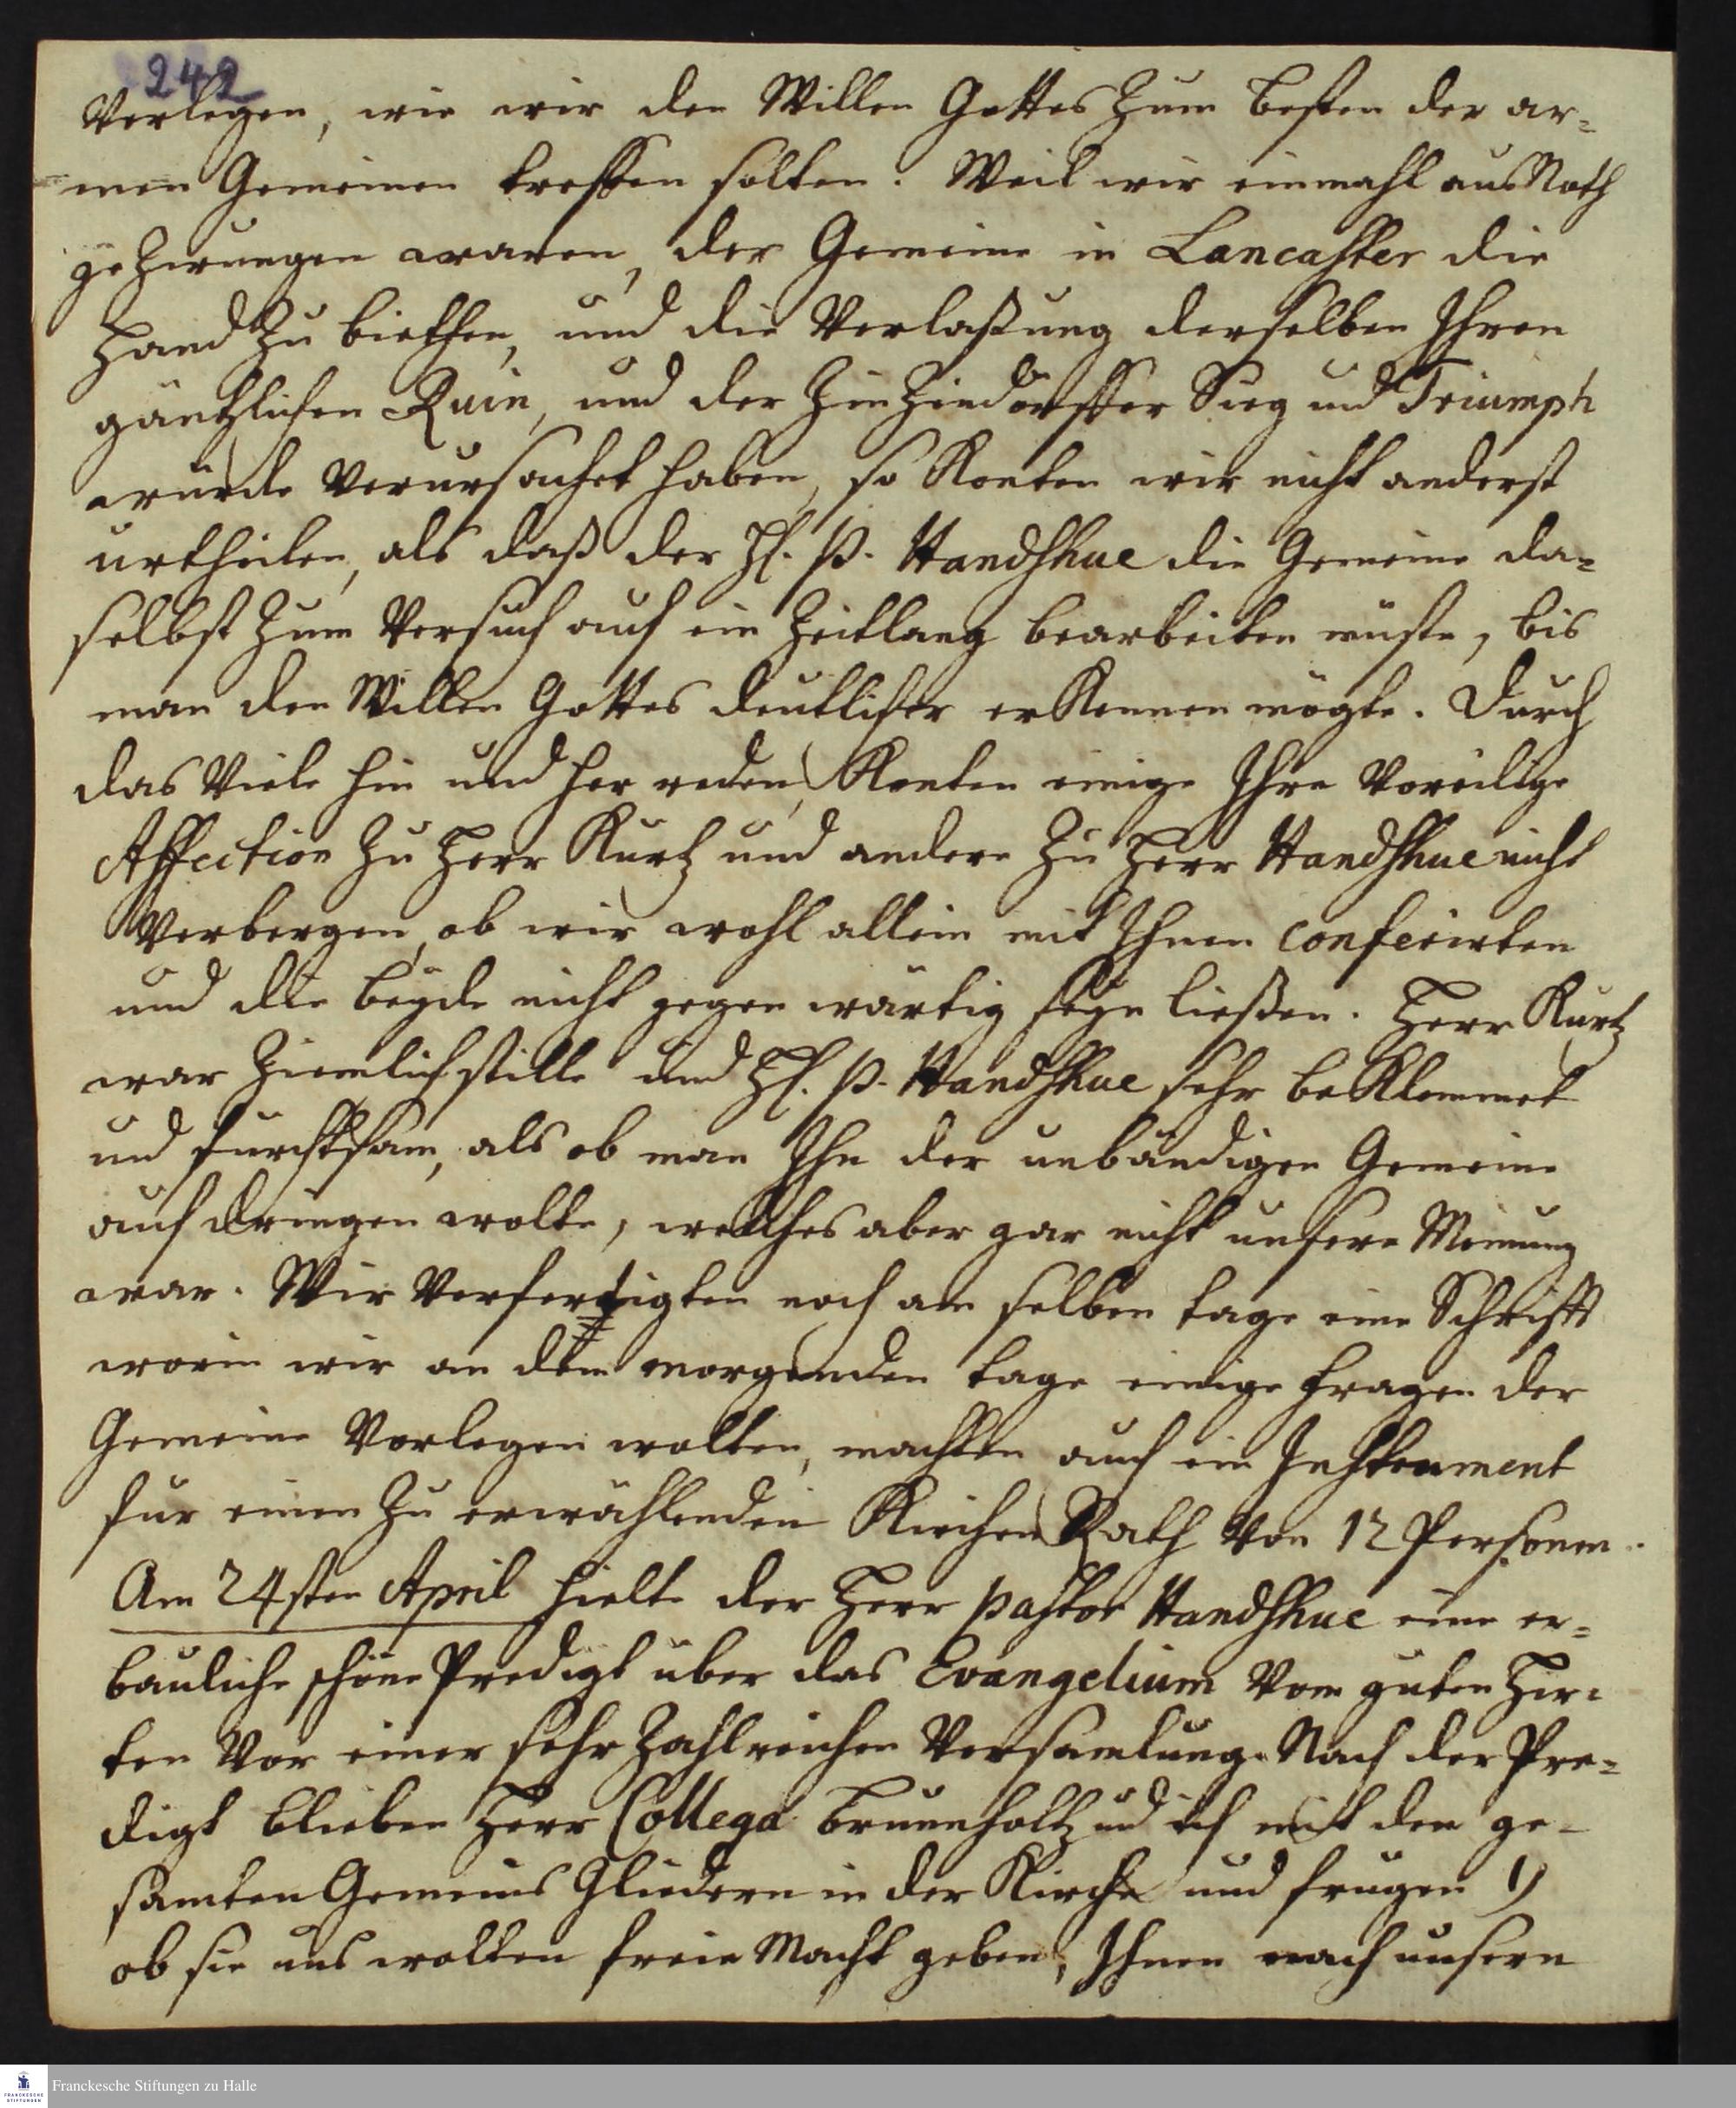 242
Verlegen, wie wir den Willen Gottes zum besten der ar=
men Gemeinen treffen solten. Weil wir einmahl aus Noth
gezwungen waren, der Gemeine in Lancaster die
Hand zu biethen, und die Verlaßung derselben Ihren
gäntzlichen Ruin, und der Zinzendorffer Sieg und Triumph
würde verursachet haben, so Konten wir nicht anderst
urtheilen, als daß der H. P. Handshue die Gemeine da=
selbst zum Versuch auf ein Zeitlang bearbeiten müste, bis
man den Willen Gottes deutlicher erKennen mögte. Durch
das Viele hin und her reden, Konten einige Ihre Voreilige
Affection zu Herr Kurtz und andere zu Herr Handshue nicht
Verbergen, ob wir wohl allein mit Ihnen conferirten
und die beyde nicht gegen wärtig seyn ließen. Herr Kurtz
war ziemlich stille und H. P. Handshue sehr beKlemmet
und furchtsam, als ob man Ihn der unbändigen Gemeine
auf dringen wolte, welches aber gar nicht unsere Meinung
war. Wir Verfertigten noch am selben tage eine Schrifft
worin wir an dem morgenden tage einige Fragen der
Gemeine Vorlegen wolten, machten auch ein Instrument
für einen zu erwählenden Kirchen Rath von 12 Personen.
Am 24sten April hielte der Herr Pastor Handshue eine er=
bauliche schöne Predigt über das Evangelium Vom guten Hir=
ten Vor einer sehr zahlreichen Versamlung. Nach der Pre=
digt blieben Herr Collega Brunnholtz und ich mit den ge=
samten Gemeins Gliedern in der Kirche und frugen 1)
ob sie uns wolten freie Macht geben, Ihnen nach unsern
Franckesche Stiftungen zu Halle